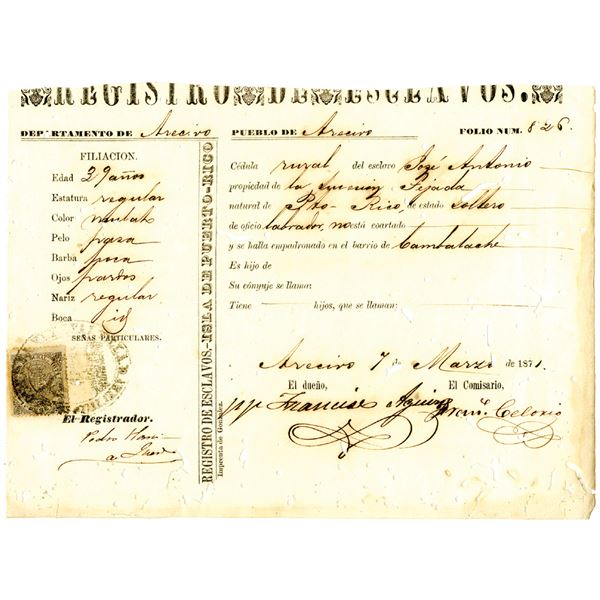 REGISTRO DE ESCLAVOS.
DEPARTAMENTO DE Arecivo PUEBLO DE Arecivo FOLIO NUM. 826.
FILIACION.
Edad 29 años
Estatura regular
Color mulato
Pelo pasa
Barba poca
Ojos pardos
Nariz regular
Boca id
SEÑAS PARTICULARES.
El Registrador.
Pedro
REGISTRO DE ESCLAVOS.-ISLA DE PUERTO-RICO
Imprenta de Gonzalez.
Cédula rural del esclavo José Antonio
propiedad de la Sucesion
natural de Pto. Rico, de estado soltero
de oficio labrador, no está coartado
y se halla empadronado en el barrio de Cambalache
Es hijo de
Su cónyuge se llama:
Tiene hijos, que se llaman:
Arecivo 7 de Marzo de 1871.
El dueño, El Comisario,
Francisco